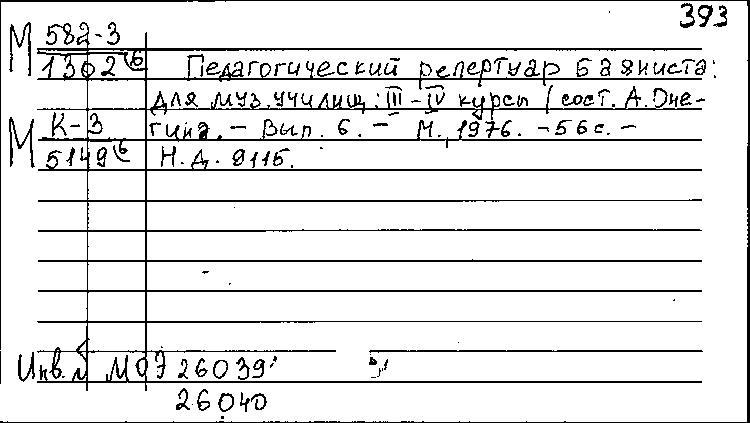 393
М 582-3
1302 б Педагогический репертуар баяниста:
для муз. училищ: III-IV курсы / сост. А. Оне-
М К-3 гина. - Вып. 6. - М., 1976. - 56 с. -
5149 б Н.Д. 9115.
Инв. № МОЭ 26039
26040